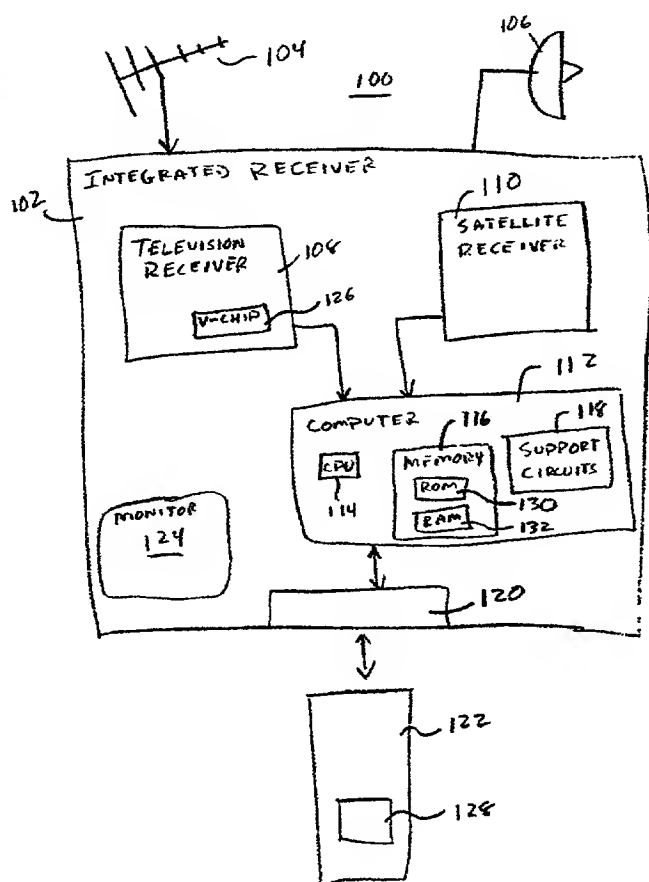 104
100
106
102
INTEGRATED RECEIVER
TELEVISION
RECEIVER
108
V-CHIP
126
110
SATELLITE
RECEIVER
112
COMPUTER
116
118
CPU
114
MEMORY
ROM
130
RAM
132
SUPPORT
CIRCUITS
MONITOR
124
120
122
128